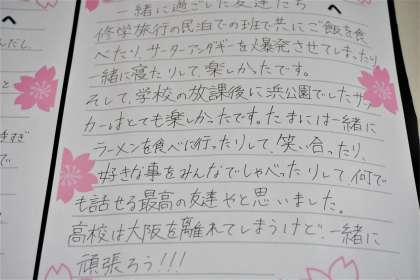 一緒に過ごした友達たち
へ
修学旅行の民泊での班で共にご飯を食
べたり、サーターアンダギーを爆発させてしまったり
一緒に寝たりして、楽しかったです。
そして、学校の放課後に浜公園でしたサッ
カーはとても楽しかったです。たまには一緒に
ラーメンを食べに行ったりして、笑い合ったり、
好きな事をみんなでしゃべったりして、何で
も話せる最高の友達やと思いました。
高校は大阪を離れてしまうけど、一緒に
頑張ろう!!!